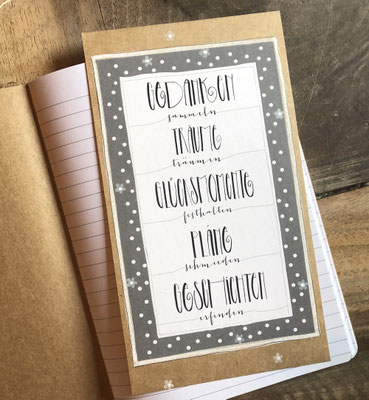 GEDANKEN
sammeln
TRÄUME
träumen
GLÜCKSMOMENTE
festhalten
PLÄNE
schmieden
GESCHICHTEN
erfinden